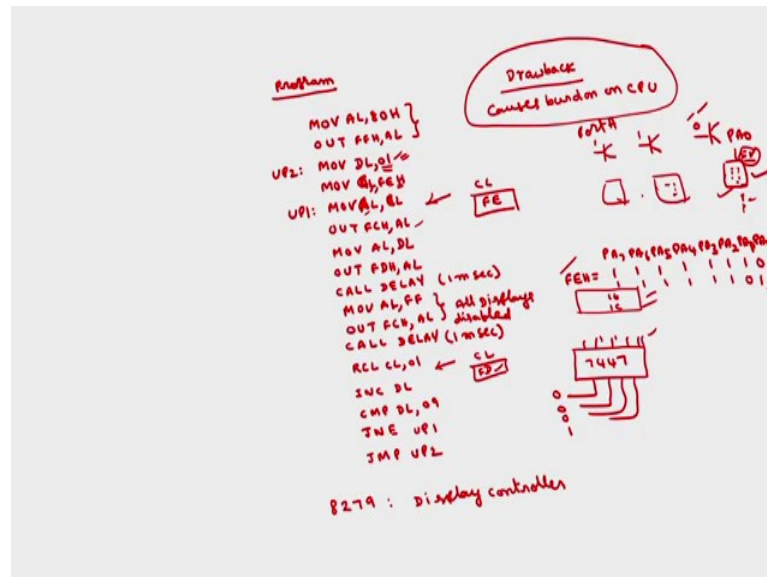 Program
MOV AL, 80H
OUT FFH, AL
UP2: MOV DL, 01
MOV CL, FEH
UP1: MOV AL, CL
OUT FCH, AL
MOV AL, DL
OUT FDH, AL
CALL DELAY (1 msec)
MOV AL, FF
OUT FCH, AL
all displays
disabled
CALL DELAY (1 msec)
RCL CL, 01
INC DL
CMP DL, 09
JNE UP1
JMP UP2
8279 : Display controller
Drawback
Causes burdon on CPU
CL
FE
CL
FD
Port A
1 1 0
PA0
PA7 PA6 PA5 PA4 PA3 PA2
FEH = 1 1 1 1 1 1 1 0
1 1 1 1 1 1 0 1
16
15
7447
0
0
0
1